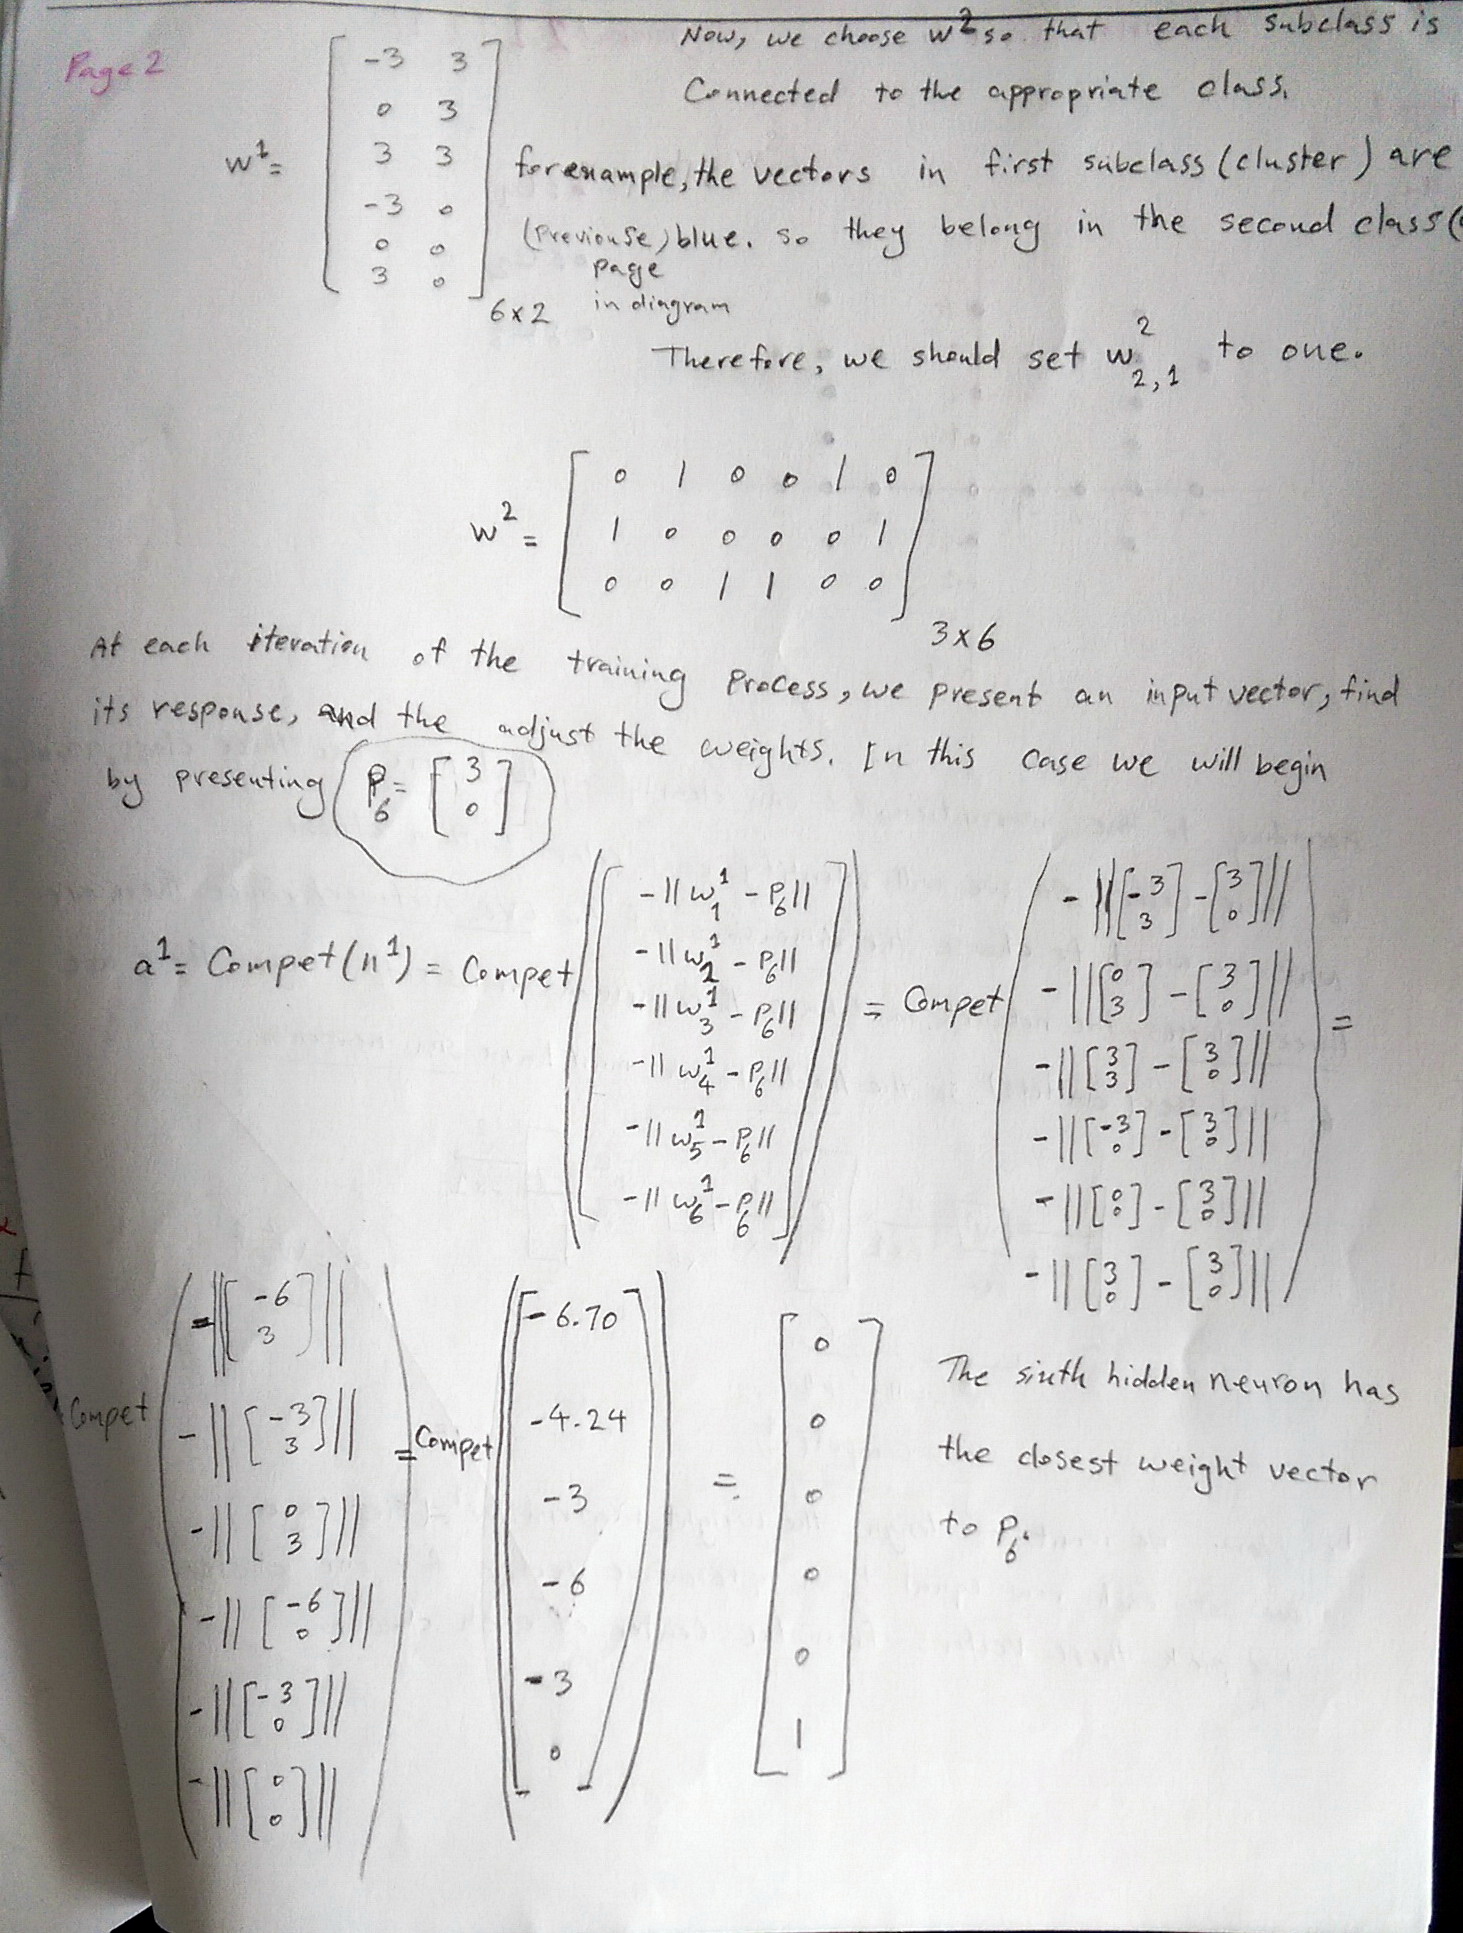 Page 2
Now, we choose w² so that each subclass is
Connected to the appropriate class.
w¹ = [ -3 3
0 3
3 3
-3 0
0 0
3 0 ] 6x2
for example, the vectors in first subclass (cluster) are
(previouse) blue. so they belong in the second class (
page
in diagram
Therefore, we should set w²₂,₁ to one.
w² = [ 0 1 0 0 1 0
1 0 0 0 0 1
0 0 1 1 0 0 ] 3x6
At each iteration of the training process, we present an input vector, find
its response, and the adjust the weights. In this case we will begin
by presenting P₆ = [ 3 0 ]
a¹ = Compet(n¹) = Compet ( [ -||w¹₁ - P₆||
-||w¹₂ - P₆||
-||w¹₃ - P₆||
-||w¹₄ - P₆||
-||w¹₅ - P₆||
-||w¹₆ - P₆|| ] ) = Compet ( -||[-3 3] - [3 0]||
-||[0 3] - [3 0]||
-||[3 3] - [3 0]||
-||[-3 0] - [3 0]||
-||[0 0] - [3 0]||
-||[3 0] - [3 0]|| ) =
Compet ( -||[-6 3]||
-||[-3 3]||
-||[0 3]||
-||[-6 0]||
-||[-3 0]||
-||[0 0]|| ) = Compet ( [ -6.70
-4.24
-3
-6
-3
0 ] ) = [ 0
0
0
0
0
1 ]
The sixth hidden neuron has
the closest weight vector
to P₆.